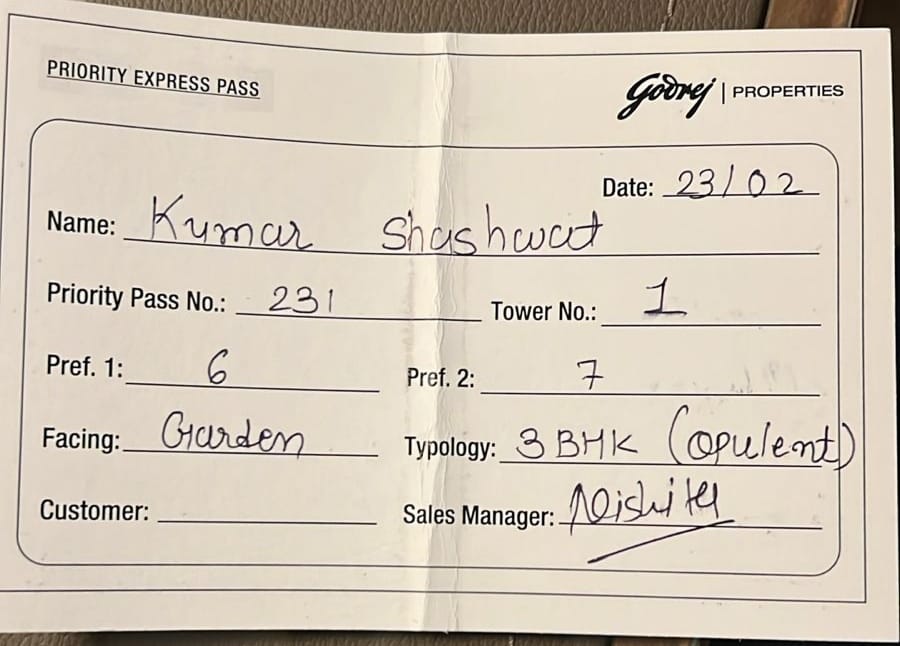 PRIORITY EXPRESS PASS
Godrej | PROPERTIES
Date: 23/02
Name: Kumar Shashwat
Priority Pass No.: 231 Tower No.: 1
Pref. 1: 6 Pref. 2: 7
Facing: Garden Typology: 3 BHK (opulent)
Customer: Sales Manager: